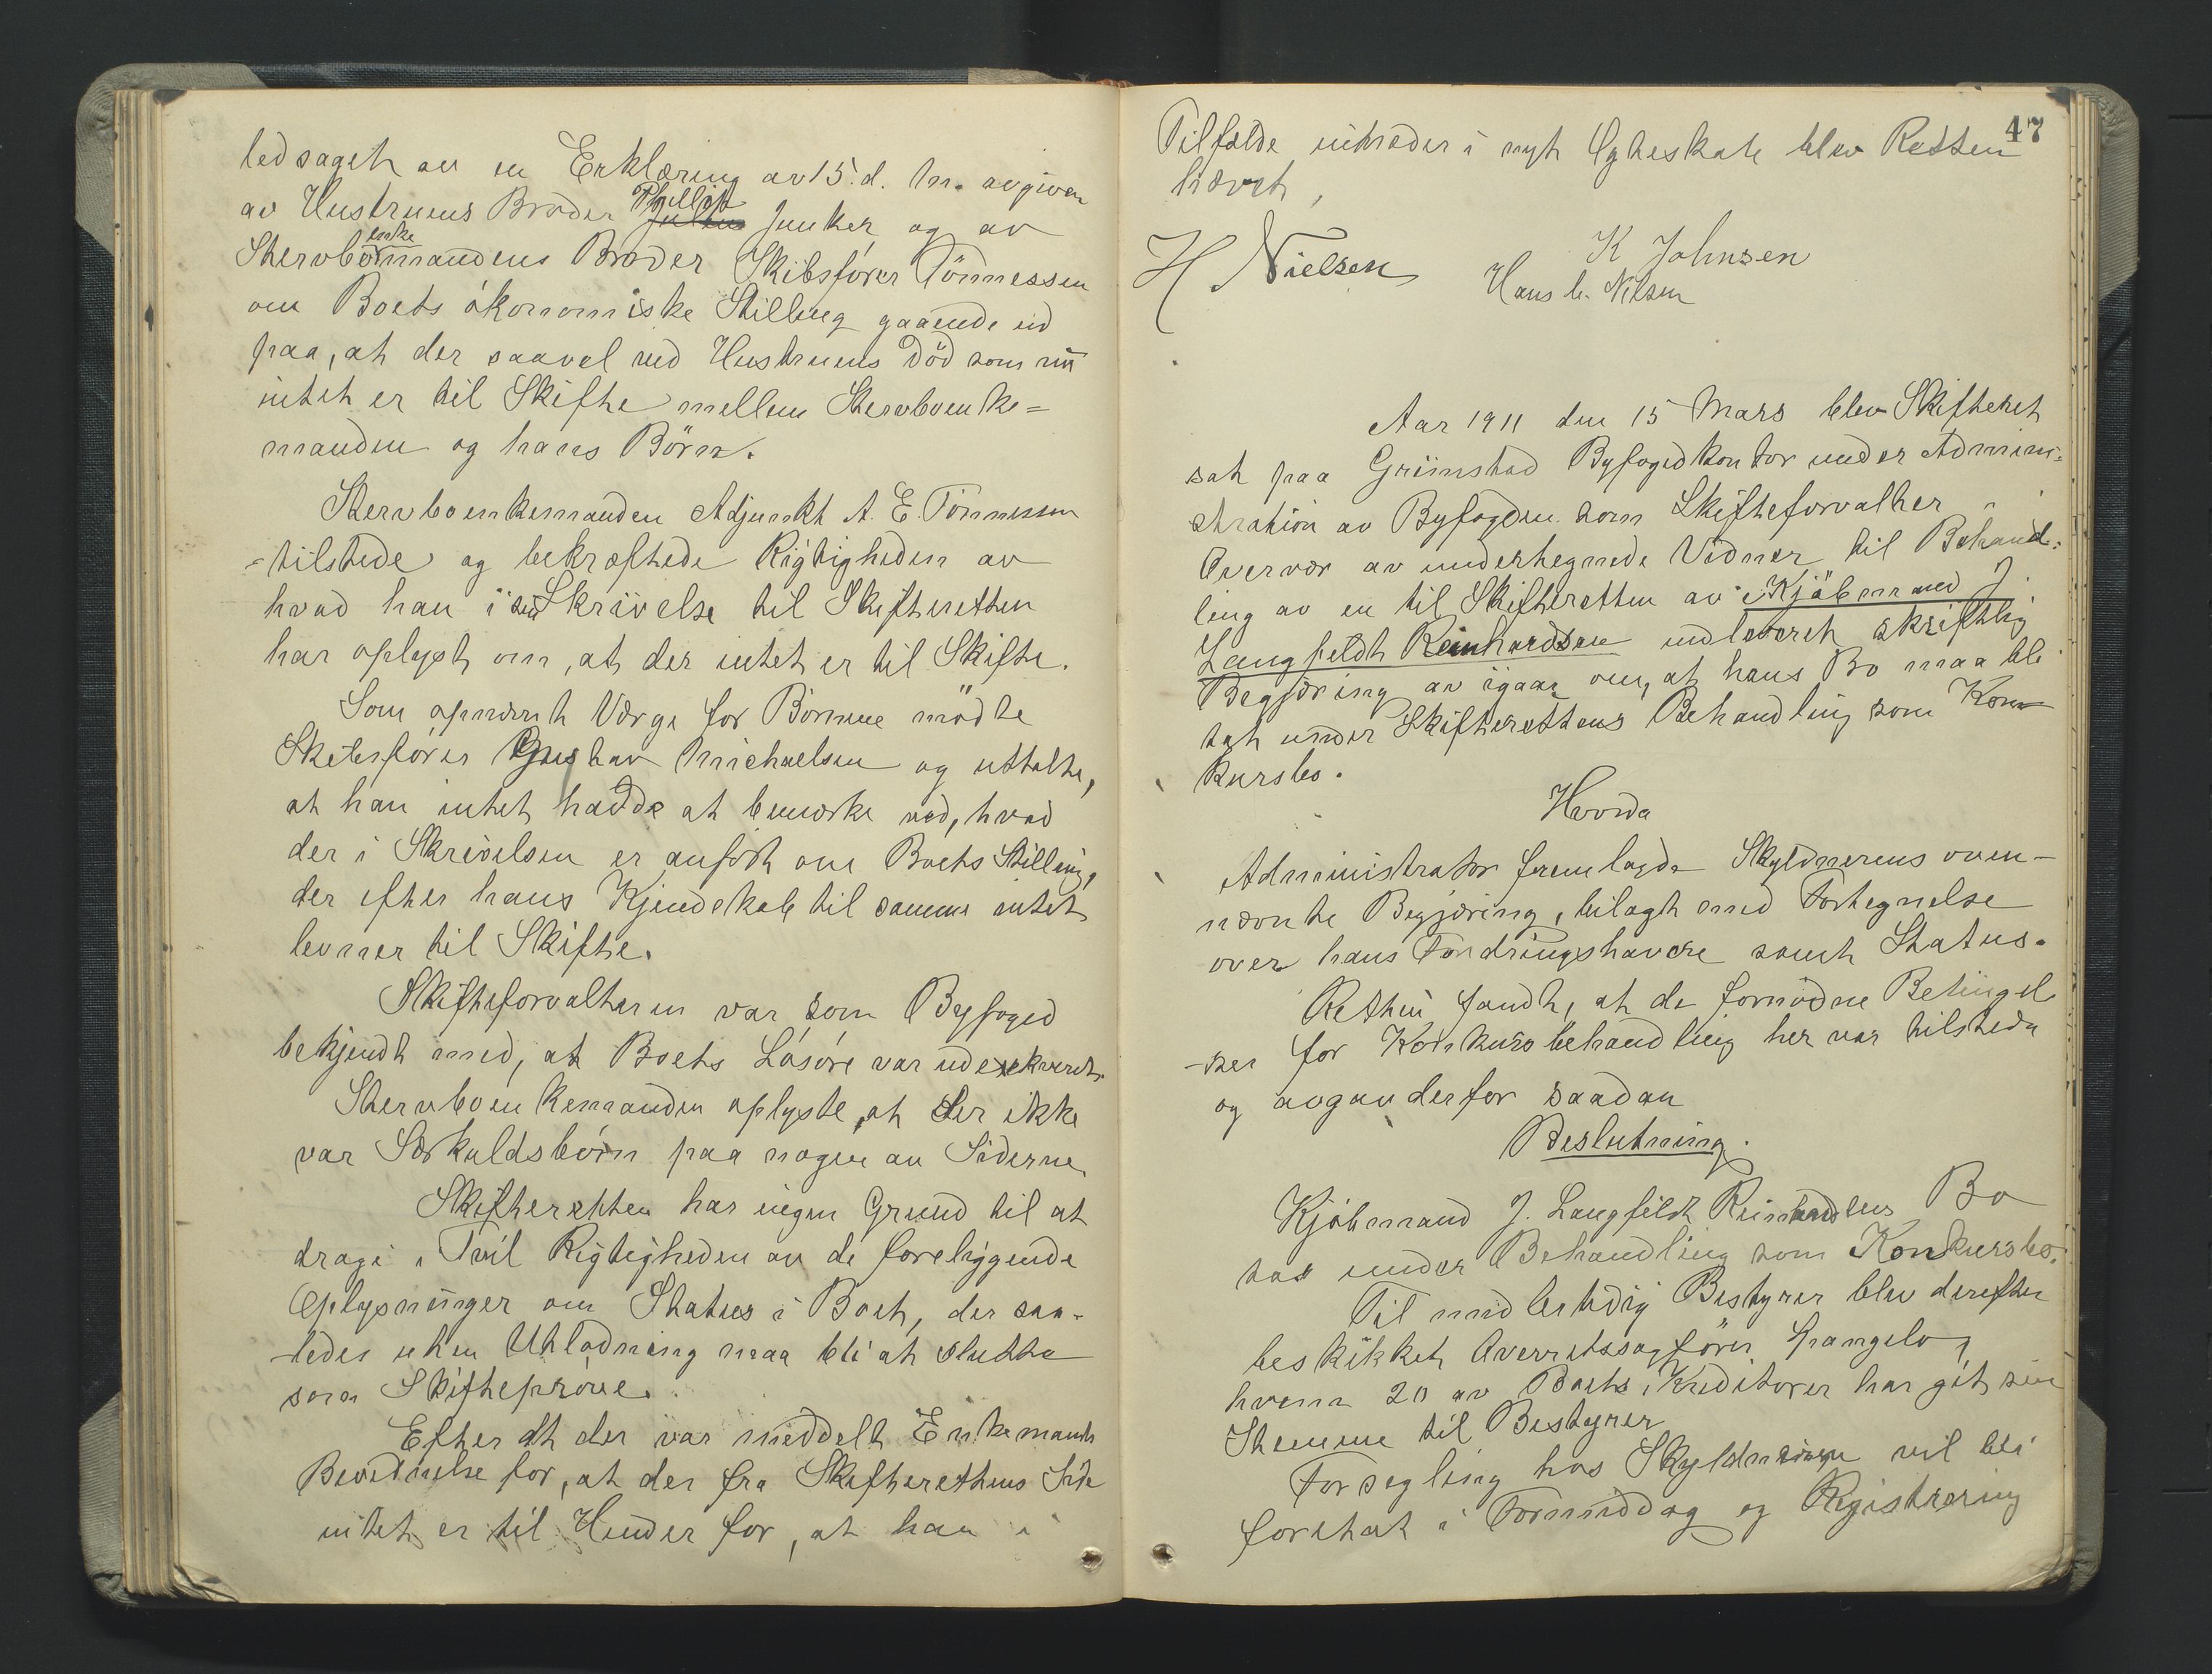 ledsaget av en Erklæring av 15. d. M. avgiven
av Hustruens Broder Phillip Junker og av
Stervboenkemandens Broder Skibsfører Tönnessen
om Boets økonomiske Stilling gaaende ud
paa, at der saavel ved Hustruens Död som nu
intet er til Skifte mellem Stervboenke=
manden og hans Börn.
Stervboenkemanden Adjunkt A. E. Tönnessen
tilstede og bekræftede Rigtigheden av
hvad han i sin Skrivelse til Skifteretten
har oplyst om, at der intet er til Skifte.
Som opnævnt Værge for Börnene mödte
Skibsfører Gustav Michaelsen og uttalte,
at han intet hadde at bemærke ved, hvad
der i Skrivelsen er anført om Boets Stilling,
der efter hans Kjendskab til samme intet
levner til Skifte.
Skifteforvalteren var som Byfoged
bekjendt med, at Boets Løsøre var udexekveret.
Stervboenkemanden oplyste, at der ikke
var Særkuldsbörn paa nogen av Siderne
Skifteretten har ingen Grund til at
drage i Tvil Rigtigheden av de foreliggende
Oplysninger om Status i Boet, der saa-
ledes uten Utlodning maa bli at slutte
som Skifteprøve.
Efter at der var meddelt Enkemanden
Bevidnelse for, at der fra Skifterettens Side
intet er til Hinder for, at han i
47
Tilfælde indtræder i nyt Egteskab blev Retten
hævet,
K Johnsen
H Nielsen
Hans C. Nilsen
Aar 1911 den 15 Mars blev Skifteret
sat paa Grimstad Byfogedkontor under Admini-
stration av Byfogden som Skifteforvalter i
Overvær av undertegnede Vidner til Behand-
ling av en til Skifteretten av Kjöbmand J.
Langfeldt Reinhardsen indleveret skriftlig
Begjæring av igaar om, at hans Bo maa bli
tat under Skifterettens Behandling som Kon
kursbo.
Hvorda
Administrator fremlagde Skyldnerens oven-
nævnte Begjæring, bilagt med Fortegnelse
over hans Fordringshavere samt Status.
Retten fandt, at de fornødne Betingel
-ser for Konkursbehandling her var tilstede
og avgav derfor saadan
Beslutning.
Kjøbmand J. Langfeldt Reinhardsens Bo
tas under Behandling som Konkursbo.
Til midlertidig Bestyrer blev derefter
beskikket Overretssagfører
hvem 20 av Boets Kreditorer har git sin
Stemme til Bestyrer
Forsegling hos Skyldneren vil bli
foretat i Formiddag og Registrering